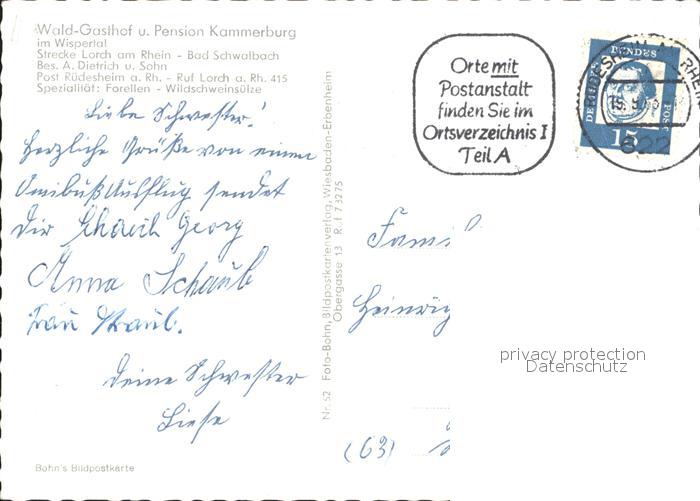 Wald-Gasthof u. Pension Kammerburg
im Wispertal
Strecke Lorch am Rhein - Bad Schwalbach
Bes. A. Dietrich u. Sohn
Post Rüdesheim a. Rh. - Ruf Lorch a. Rh. 415
Spezialität: Forellen - Wildschweinsülze
Liebe Schwester!
Herzliche Grüße von einem
Omnibußausflug sendet
Dir Georg
Anna Schaub
Frau
Deine Schwester
Liese
Bohn's Bildpostkarte
Nr. 52 Foto-Bohn, Bildpostkartenverlag, Wiesbaden-Erbenheim
Obergasse 13 Ruf 73275
Orte mit
Postanstalt
finden Sie im
Ortsverzeichnis I
Teil A
DEUTSCHE BUNDESPOST
15
622
Famil
Heinrig
privacy protection
Datenschutz
(63)